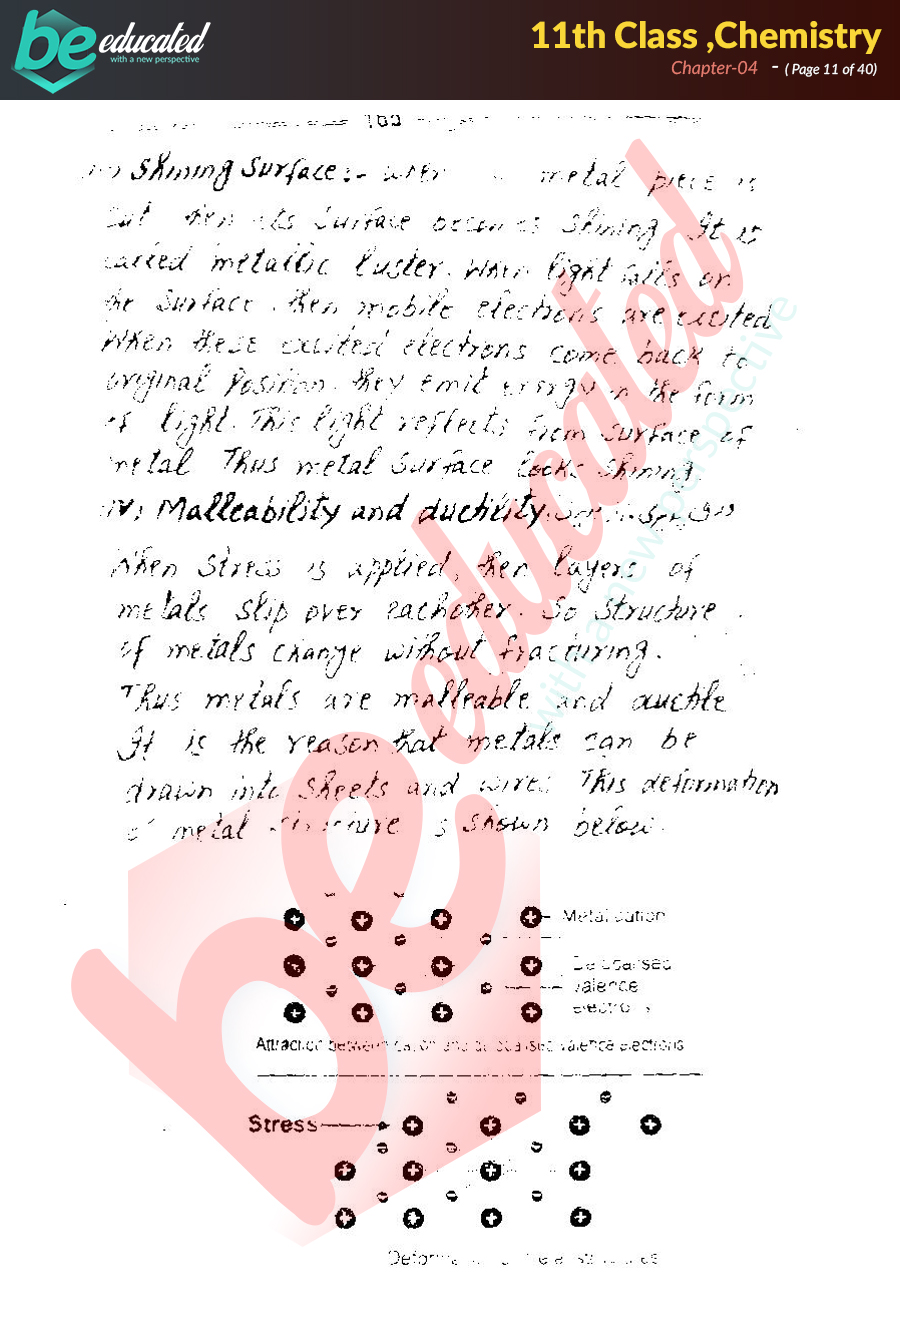 be educated
with a new perspective
11th Class ,Chemistry
Chapter-04 - ( Page 11 of 40)
Shining Surface:- when metal piece is
cut then its Surface becomes Shining It is
called metallic luster. When light falls on
the Surface then mobile electrons are excited
When these excited electrons come back to
original Position they emit energy in the form
of light. This light reflects from Surface of
metal Thus metal Surface looks Shining
iv) Malleability and ductility:
When Stress is applied, then layers of
metals Slip over eachother. So Structure
of metals change without fracturing.
Thus metals are malleable and ductile
It is the reason that metals can be
drawn into Sheets and wires This deformation
of metal structure is shown below.
Metal cation
valence
Electrons
Attraction between cation and valence electrons
Stress
be educated
with a new perspective